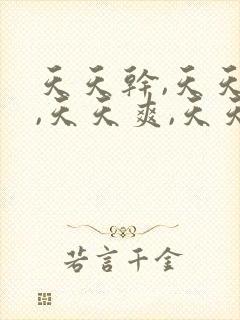 天天幹,天天
,天天爽,天天
若言千金